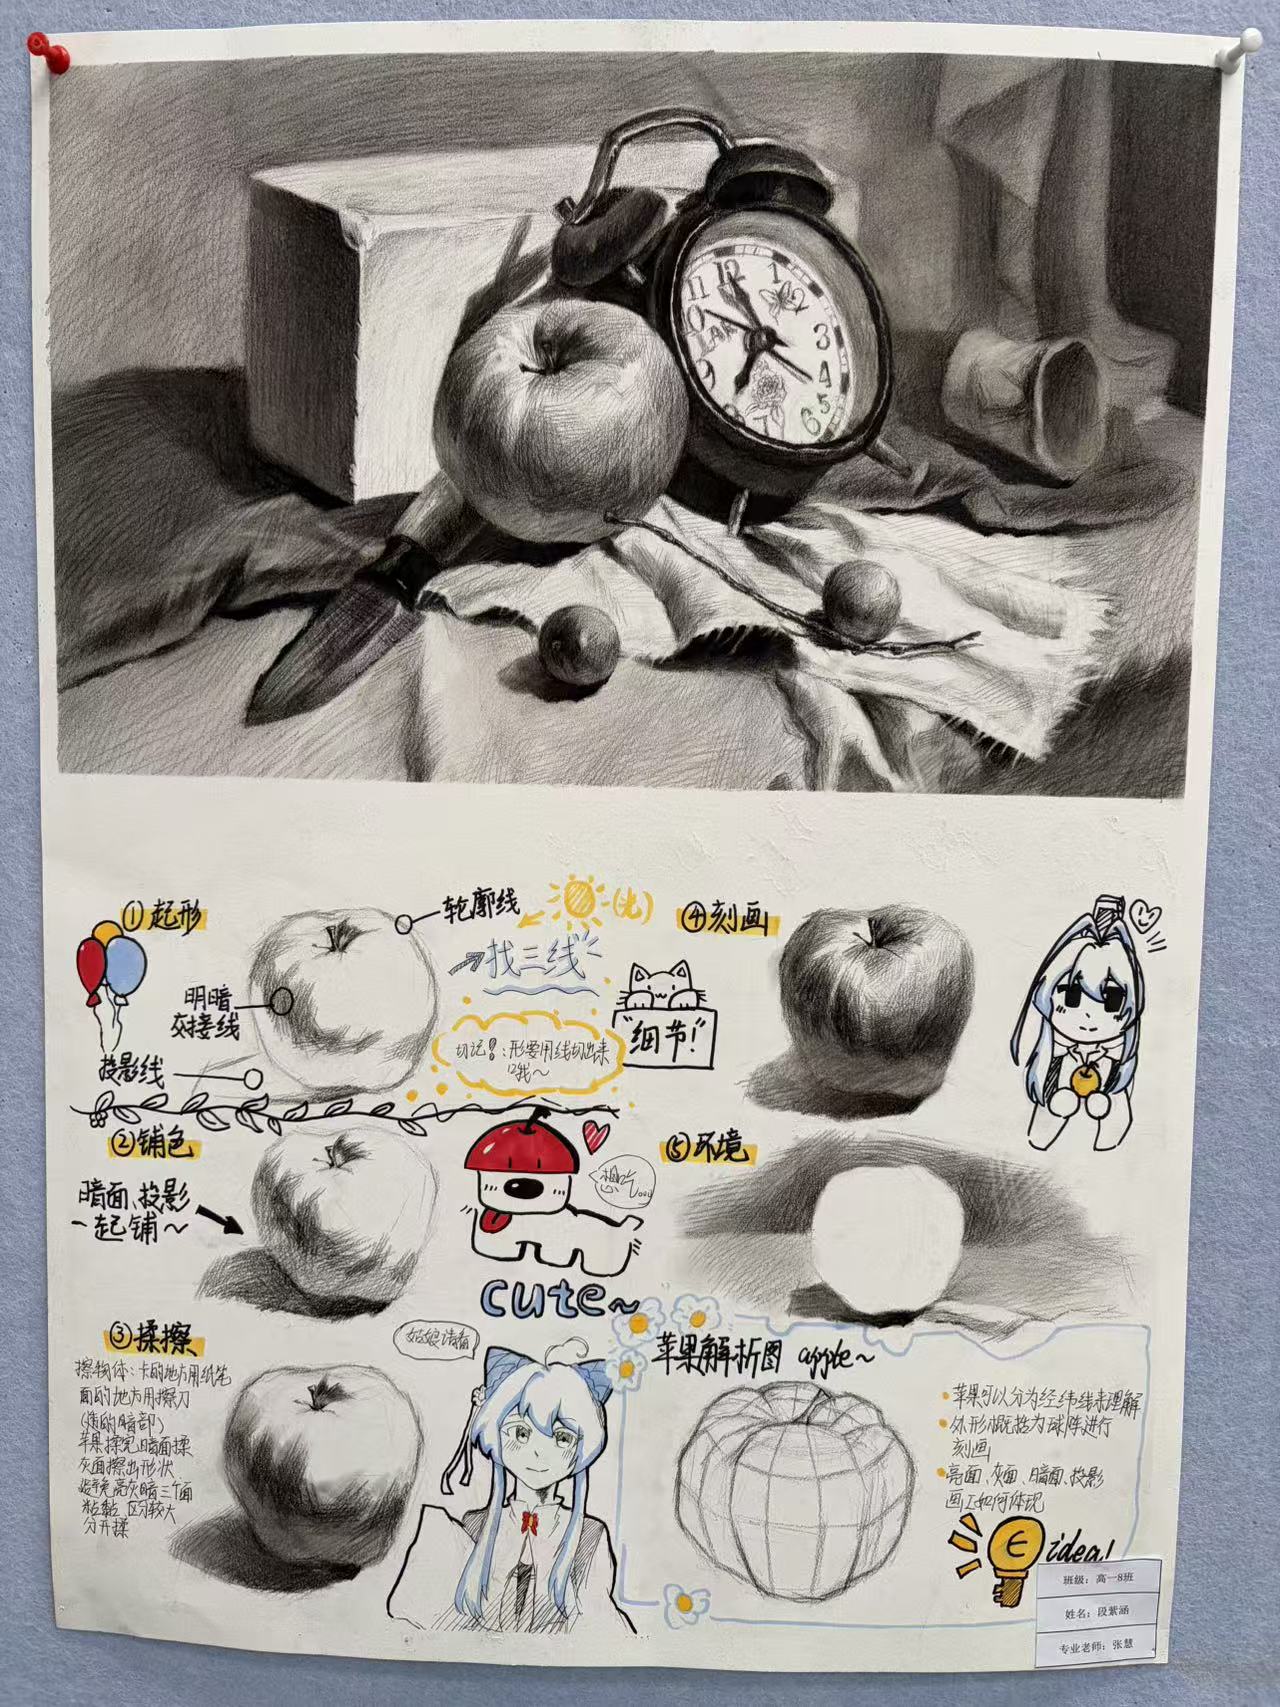 12
1
2
3
4
5
6
7
9
10
11
①起形
轮廓线
(光)
找三线
明暗
交接线
投影线
切记!:形要用线切出来
哦~
④刻画
"细节!"
②铺色
暗面、投影
一起铺~
想吃。。。
cute~
⑤环境
③揉擦
擦物体:卡的地方用纸笔
面的地方用擦刀
苹果擦完暗面揉
灰面擦出形状
亮灰暗三个面
区分较大
分开揉
姑娘请看
苹果解析图 apple~
·苹果可以分为经纬线来理解
·外形概括为球体进行
刻画
·亮面、灰面、暗面、投影
画上如何体现
idea!
班级:高一8班
姓名:段紫涵
专业老师:张慧